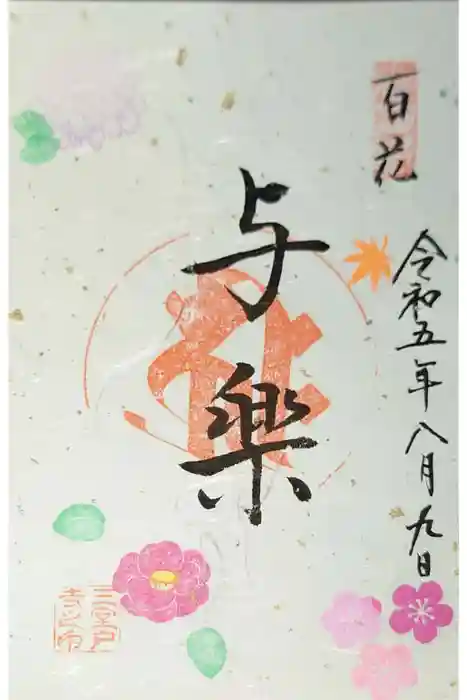 百花
令和五年八月九日
与樂
三室戸
寺之印